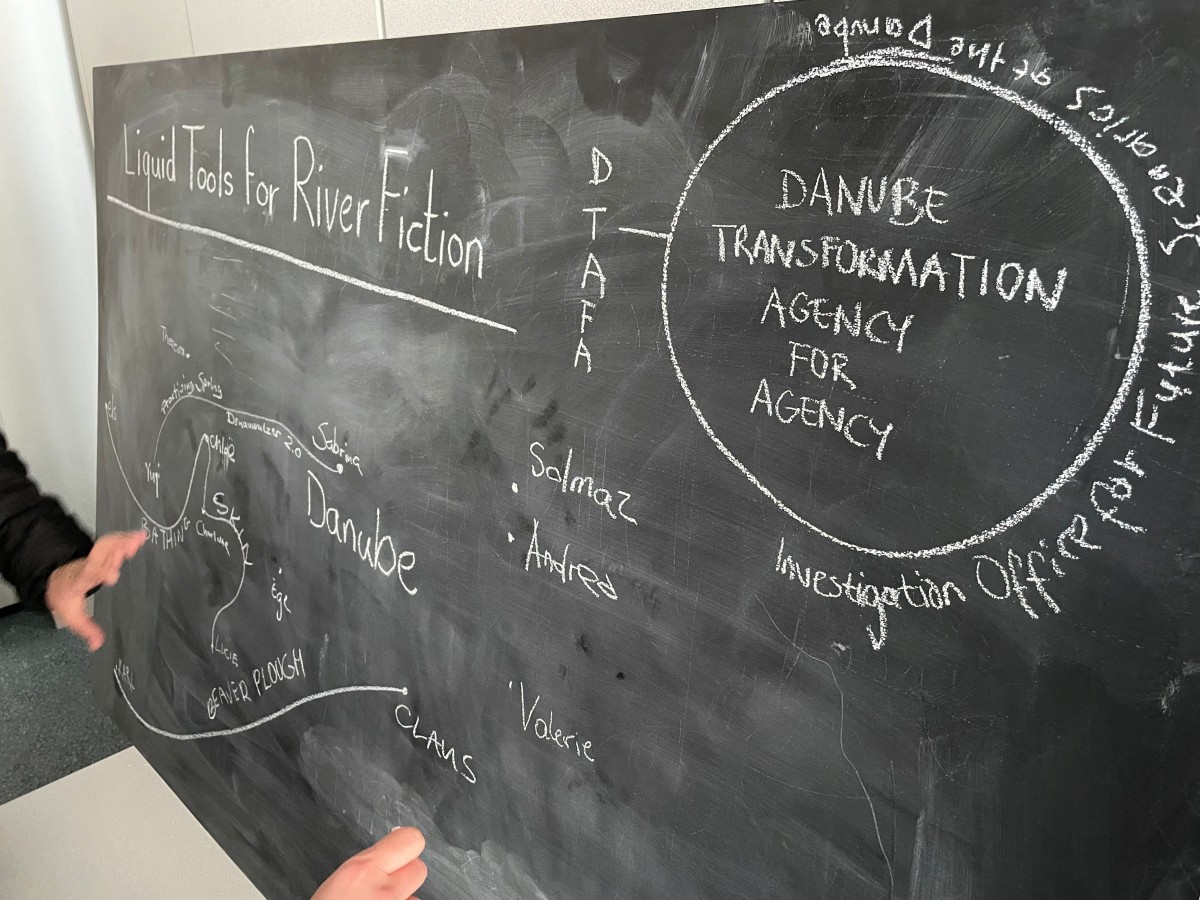 Liquid Tools for River Fiction
D
T
A
F
A
DANUBE
TRANSFORMATION
AGENCY
FOR
AGENCY
Investigation Office For Future Scenarios of the Danube
Practising Spring
Donauwalzer 2.0
Sabrina
Yuqi
Chloé
BATHING
SK
Charlotte
Danube
Ege
LUCIE
BEAVER PLOUGH
CLAUS
Solmaz
Andrea
Valerie